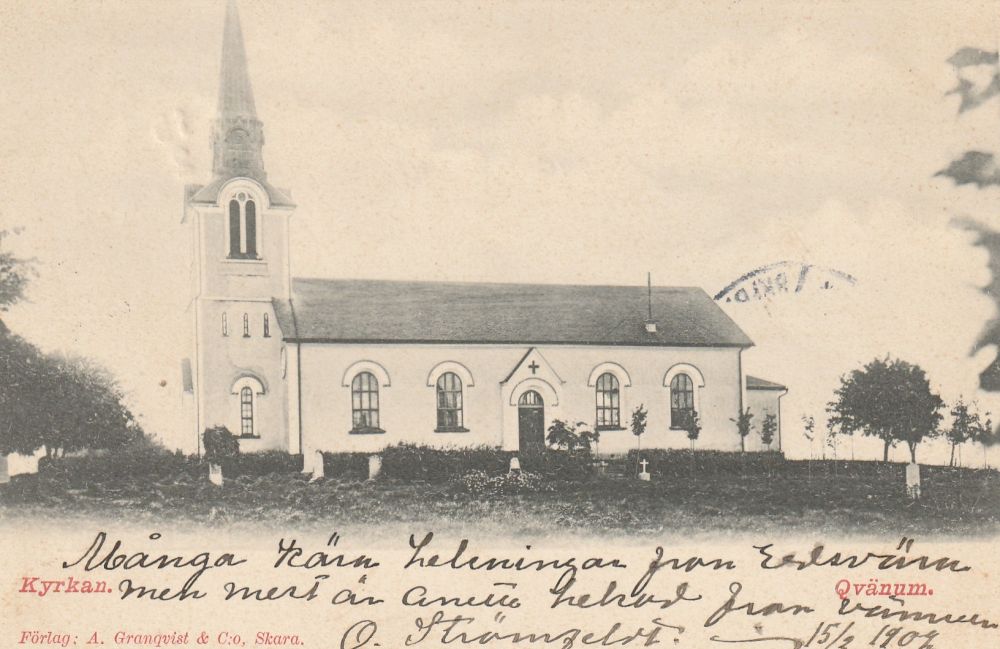 Många kära helsningar från Eedsvära
Kyrkan.
men mest är Anette helsad från vännen
Qvänum.
Förlag: A. Granqvist & C:o, Skara.
O. Strömfeldt. 15/2 1902